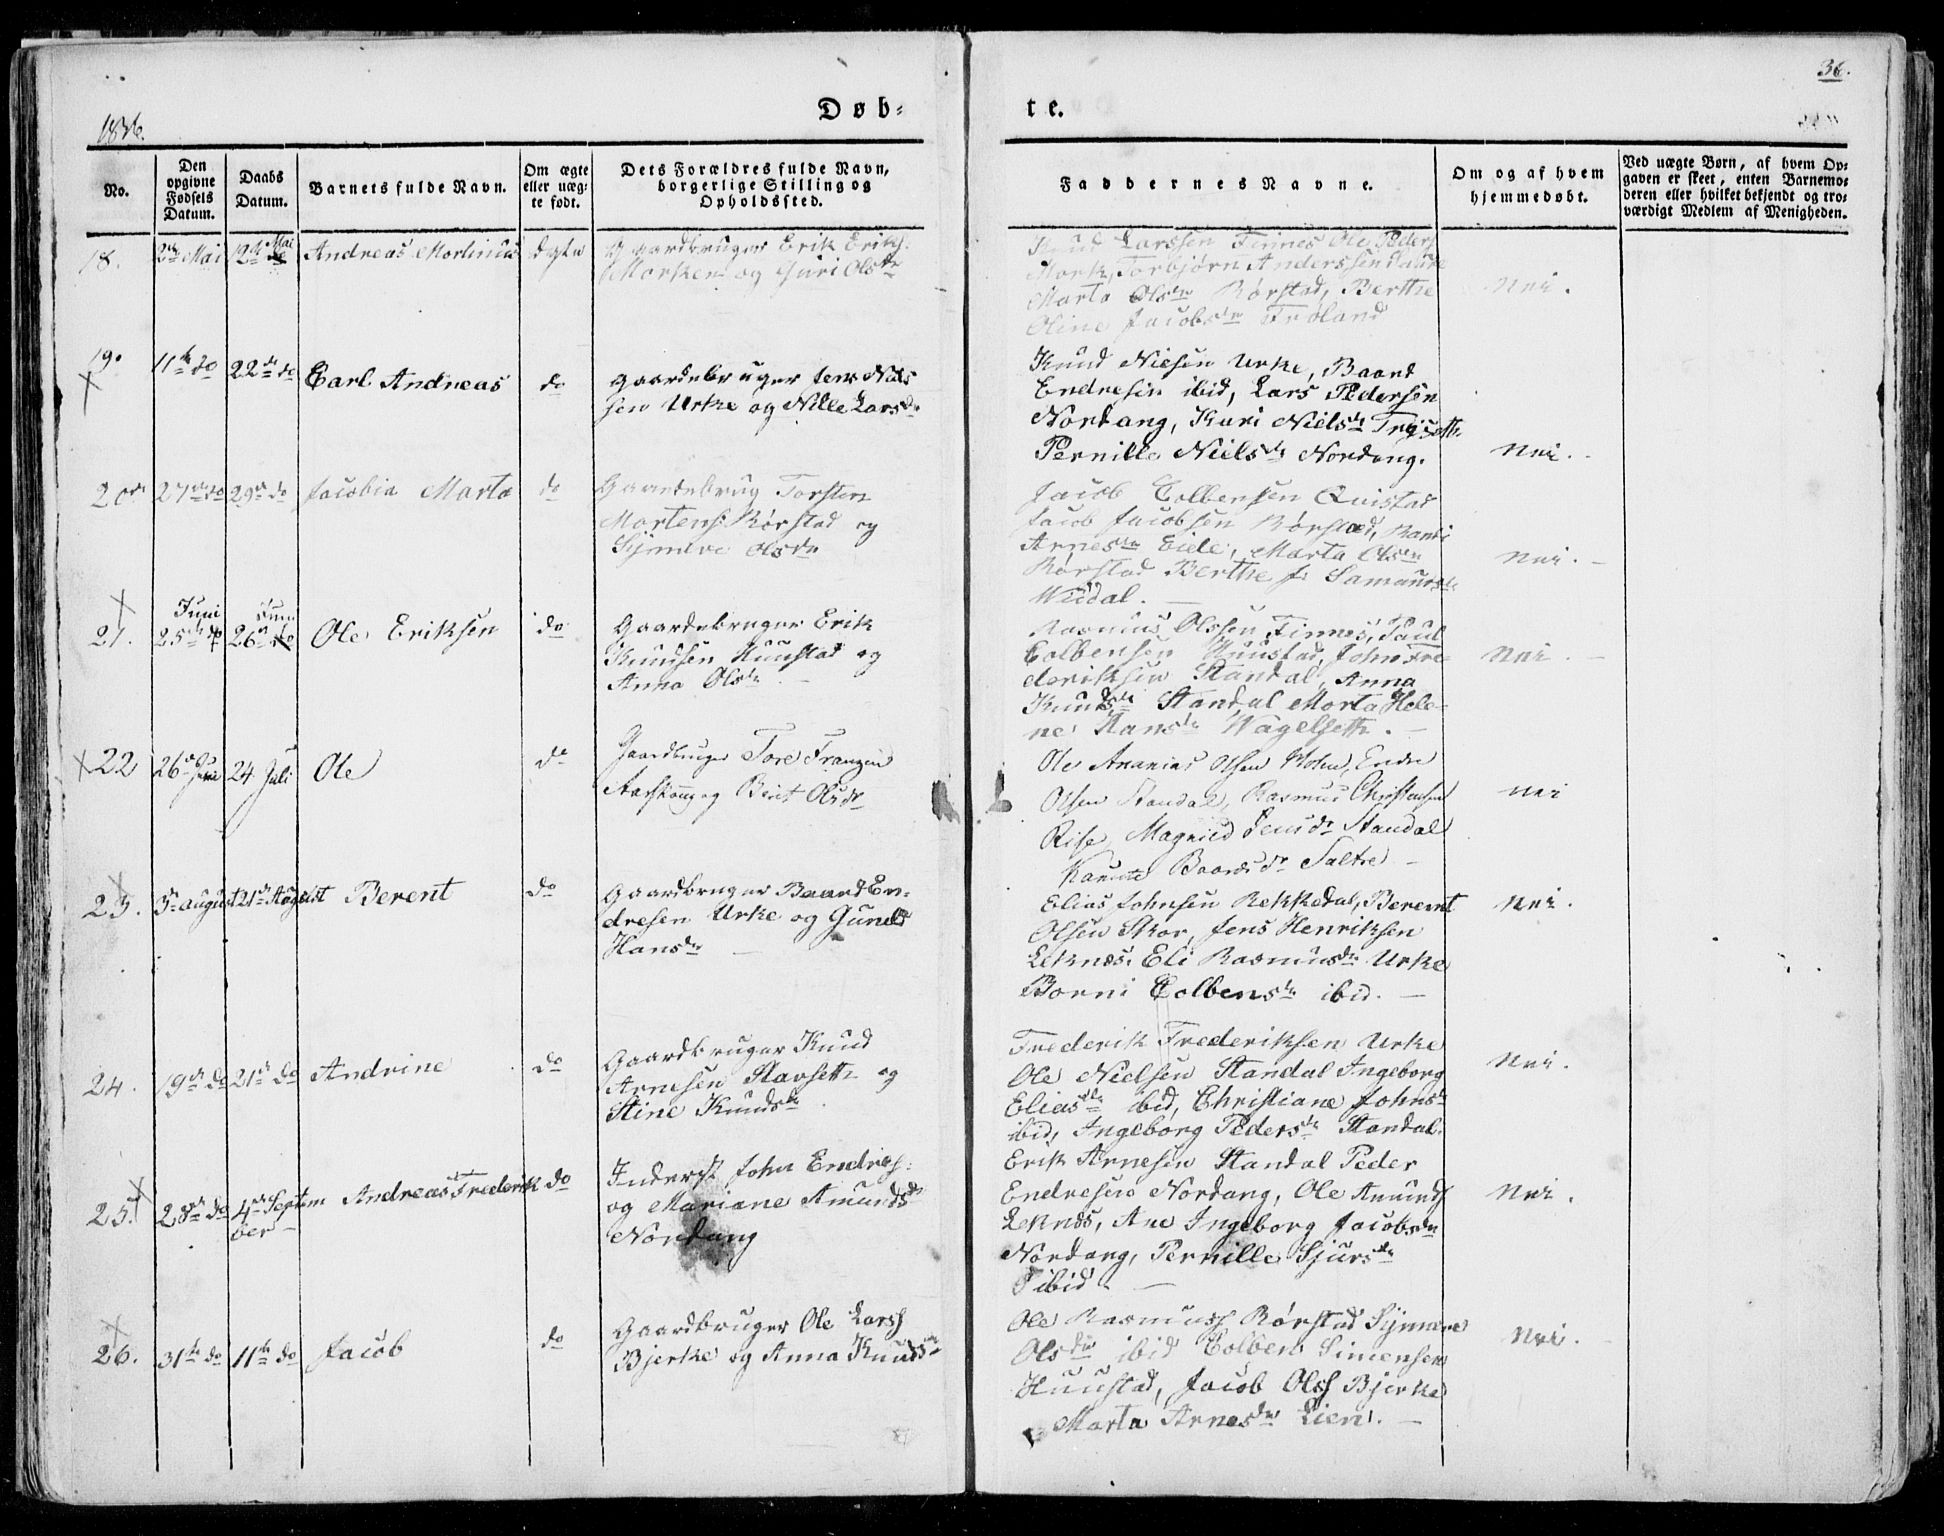 36.
1836.
Døb-
te.
No.
Den opgivne Fødsels Datum.
Daabs Datum.
Barnets fulde Navn.
Om ægte eller uæg- te født.
Dets Forældres fulde Navn, borgerlige Stilling og Opholdssted.
Faddernes Navne.
Om og af hvem hjemmedøbt.
Ved uægte Børn, af hvem Op- gaven er skeet, enten Barnemo- deren eller hvilket bekjendt og tro- værdigt Medlem af Menigheden.
18.
2den Mai
12te Mai
Andreas Mortinus
Gaardbruger Erik Eriks.
Morken og Guri Olsdr
Knud Larssen Finnes Ole Peders
Mork, Torbjørn Anderssen
Marta Olsdr Rørstad, Berthe
Oline Jacobsdr Frøland
Nei.
19.
11te do
22de do
Carl Andreas
do
Gaardebruger Jens Niels
sen Urke og Nille Larsdr
Knud Nielsen Urke, Baard
Endresen ibid, Lars Pedersen
Nordang, Kari Nielsdr
Pernille Nielsdr Nordang.
Nei.
20de
27de do
29de do
Jacobia Marta
do
Gaardebrug Torsten
Mortens. Rørstad og
Synneve Olsdr
Jacob Colbensen Quistad
Jacob Jacobsen Rørstad, Randi
Arnesdr Eide, Marta Olsdr
Rørstad Berthe J. Samuelsdr
Nei.
21.
Juni
25de
Juni
26de
Ole Eriksen
do
Gaardebruger Erik
Knudsen Huustad og
Anna Olsdr
Rasmus Olssen Finnes, Paul
Colbensen Huustad, John Fre-
deriksen Standal, Anna
Knudsdr Standal Marta Hele-
ne Hansdr Wagelseth.
Nei.
22
26de Juni
24 Juli
Ole
do
Gaardbruger Tore Franzen
Aarskoug og Berit Olsdr
Ole Ananias Olsen Holen, Endre
Olsen Standal, Rasmus Christensen
Rise, Magnild Jensdr Standal
Kanute Baardsdr Sætre
Nei
23.
3de august
21de August
Berent
do
Gaardbruger Baard En-
dresen Urke og Gunild
Hansdr
Elias Johnsen Rekkedal, Berent
Olsen Skor, Jens Henriksen
Leknes. Eli Rasmusdr Urke
Borni Colbensdr ibid.
Nei.
24.
19de do
21de do
Andrine
do
Gaardbruger Knud
Arnesen Slavseth og
Stine Knudsdr
Frederik Frederiksen Urke
Ole Nielsen Standal Ingeborg
Eliasdr ibid, Christiane Johnsdr
ibid, Ingeborg Pedersdr Standal.
Nei.
25.
28de do
4de Septem
ber
Andreas Frederik
do
Inderst John Endres:
og Mariane Amundsdr
Nordang
Erik Arnesen Standal Peder
Endresen Nordang, Ole Amunds
Leknes, Ane Ingeborg Jacobsdr
Nordang, Pernille Sjursdr
ibid
Nei.
26.
31te do
11te do
Jacob
do
Gaardbruger Ole Larss
Bjerke og Anna Knudsdr
Ole Rasmuss Rørstad Synneve
Olsdr ibid Colben Simensen
Huustad, Jacob Olss Bjerke
Marta Arnesdr Lien.
Nei.